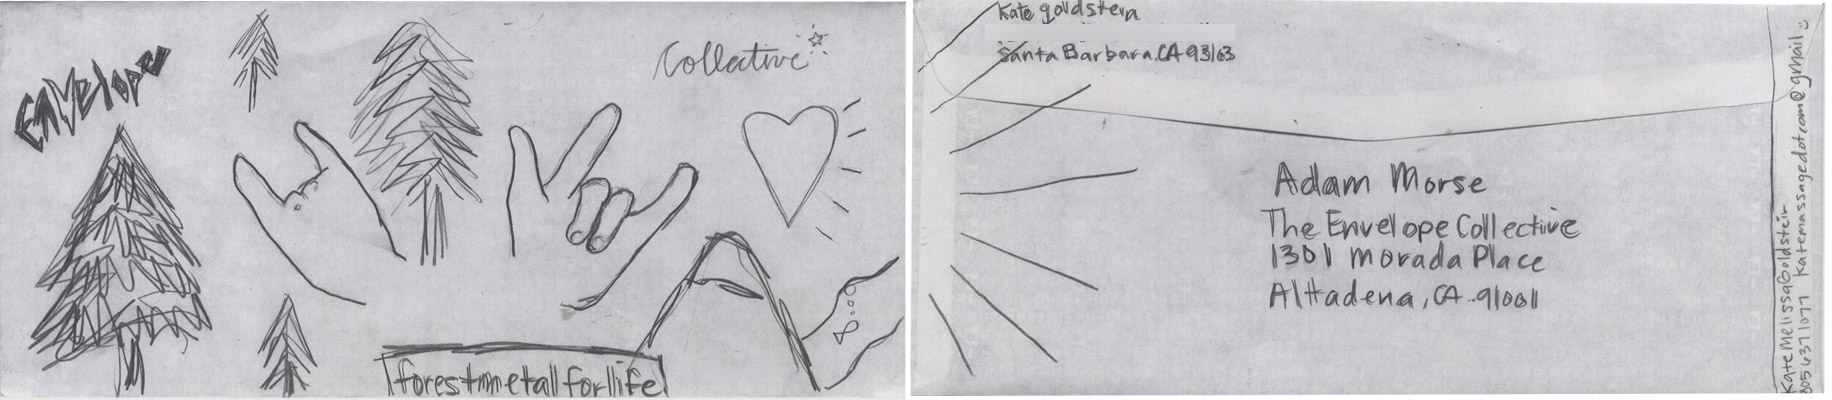 Envelope
Collective
forestmetallforlife
Kate goldstein
Santa Barbara, CA 93163
Adam Morse
The Envelope Collective
1301 Morada Place
Altadena, CA 91001
Kate Melissa Goldstein
805 637 1077 katemassagedotcom@gmail :)